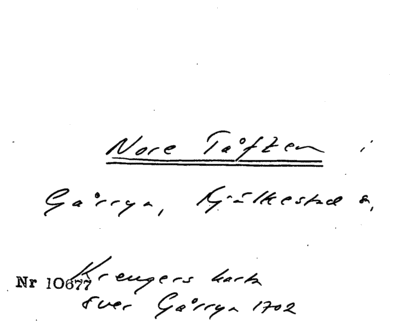 Nore Tåften i
Gårryn, Kjulkestad s,
Nr 10677
Kreugers karta
över Gårryn 1702